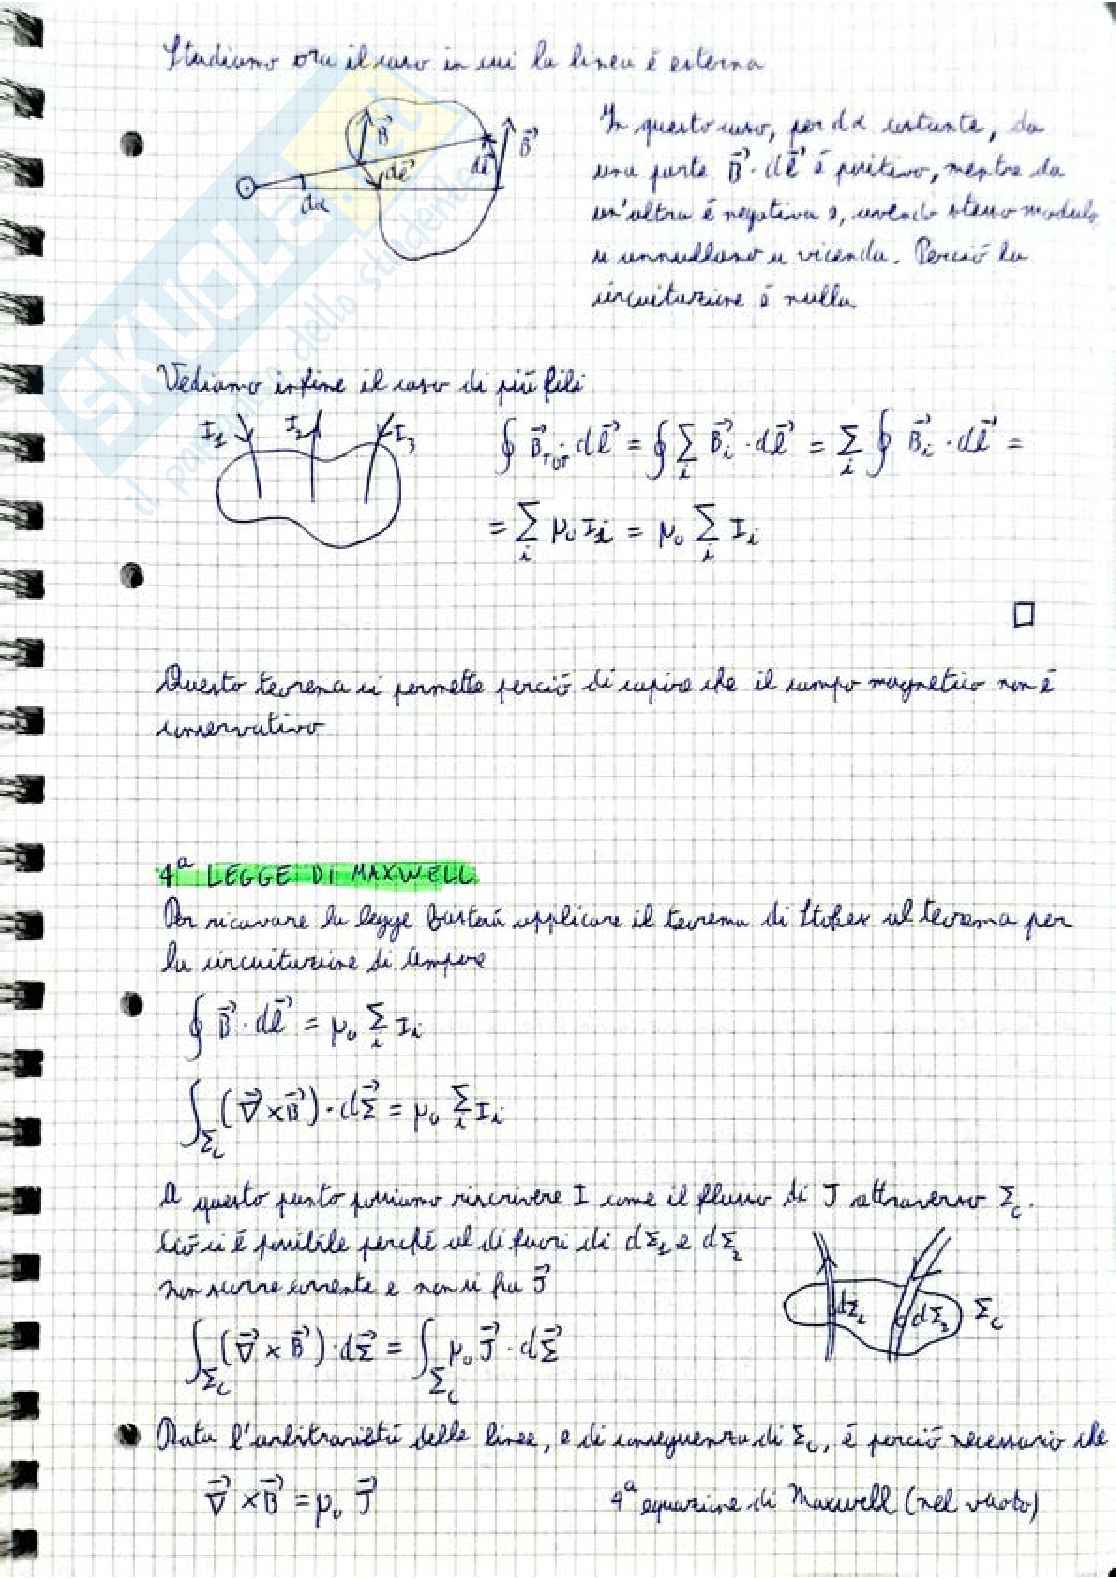 Studiamo ora il caso in cui la linea è esterna
In questo caso, per dα costante, da
una parte B⃗ · dl⃗ è positivo, mentre da
un'altra è negativa e, avendo stesso modulo
si annullano a vicenda. Perciò la
circuitazione è nulla
B⃗
dl⃗
dα
dl⃗
B⃗
SKUOLA.net
il paradiso dello studente
Vediamo infine il caso di più fili
I₁ I₂ I₃
∮ B⃗_TOT · dl⃗ = ∮ ∑_i B⃗_i · dl⃗ = ∑_i ∮ B⃗_i · dl⃗ =
= ∑_i μ₀ I_i = μ₀ ∑_i I_i
□
Questo teorema ci permette perciò di capire che il campo magnetico non è
conservativo
4ª LEGGE DI MAXWELL
Per ricavare la legge basterà applicare il teorema di Stokes al teorema per
la circuitazione di Ampere
∮ B⃗ · dl⃗ = μ₀ ∑_i I_i
∫_Σc (∇⃗ × B⃗) · dΣ⃗ = μ₀ ∑_i I_i
A questo punto possiamo riscrivere I come il flusso di J attraverso Σc.
Ciò ci è possibile perché al di fuori di dΣ₁ e dΣ₂
non scorre corrente e non si ha J⃗
dΣ₁ dΣ₂ Σc
∫_Σc (∇⃗ × B⃗) · dΣ⃗ = ∫_Σc μ₀ J⃗ · dΣ⃗
Data l'arbitrarietà delle linee, e di conseguenza di Σc, è perciò necessario che
∇⃗ × B⃗ = μ₀ J⃗ 4ª equazione di Maxwell (nel vuoto)